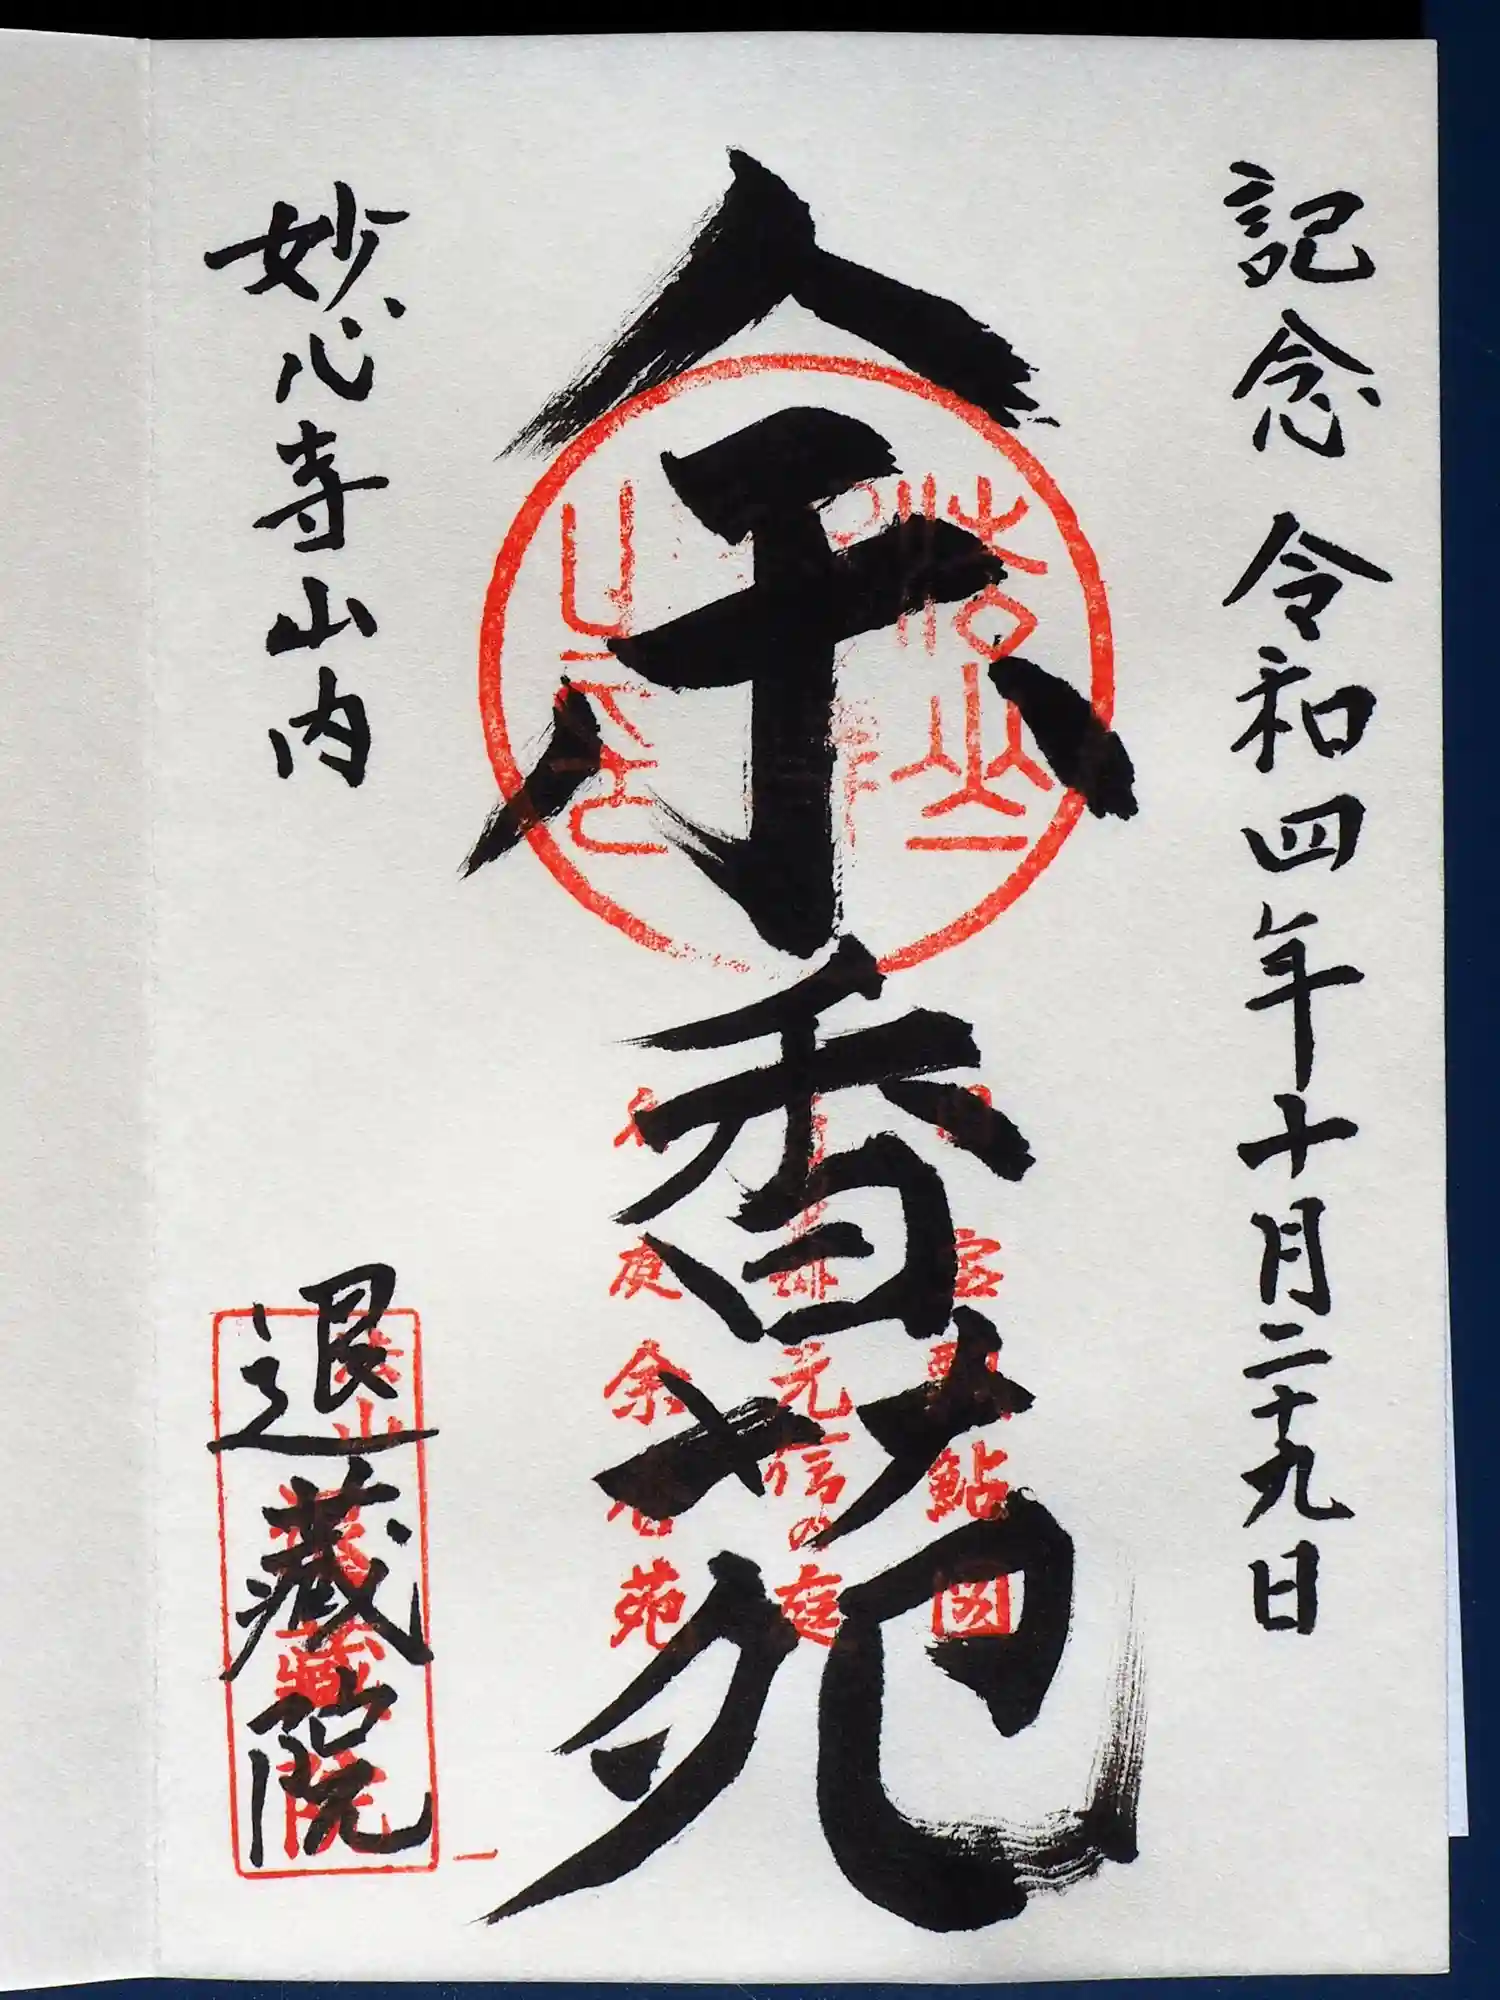 記念 令和四年十月二十九日
余香苑
国宝瓢鮎図
元信の庭
庭余香苑
妙心寺山内
退蔵院